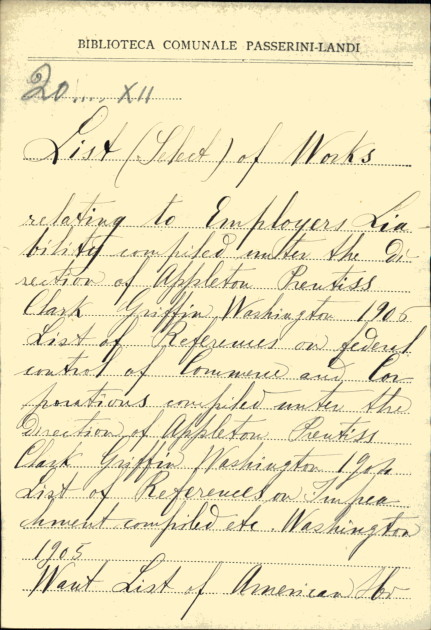 BIBLIOTECA COMUNALE PASSERINI-LANDI
20.... XII
List (Select) of Works
relating to Employers Lia-
bility compiled under the di-
rection of Appleton Prentiss
Clark Griffin Washington 1906
List of References on federal
control of Commerce and Cor
porations compiled under the
direction of Appleton Prentiss
Clark Griffin Washington
List of References on Impea
chment compiled etc Washington
1905
Want List of American